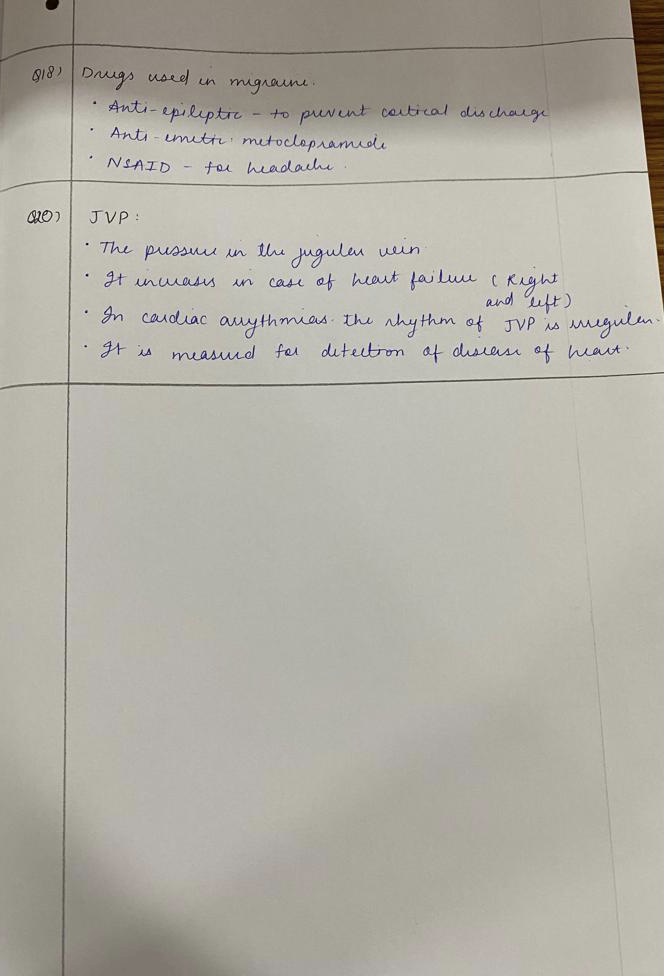 Q18) Drugs used in migraine.
· Anti-epileptic - to prevent cortical discharge
· Anti-emetic. metoclopramide
· NSAID - for headache.
Q20) JVP:
· The pressure in the jugular vein
· It increases in case of heart failure (Right
and left)
· In cardiac arrythmias. the rhythm of JVP is irregular.
· It is measured for detection of disease of heart.